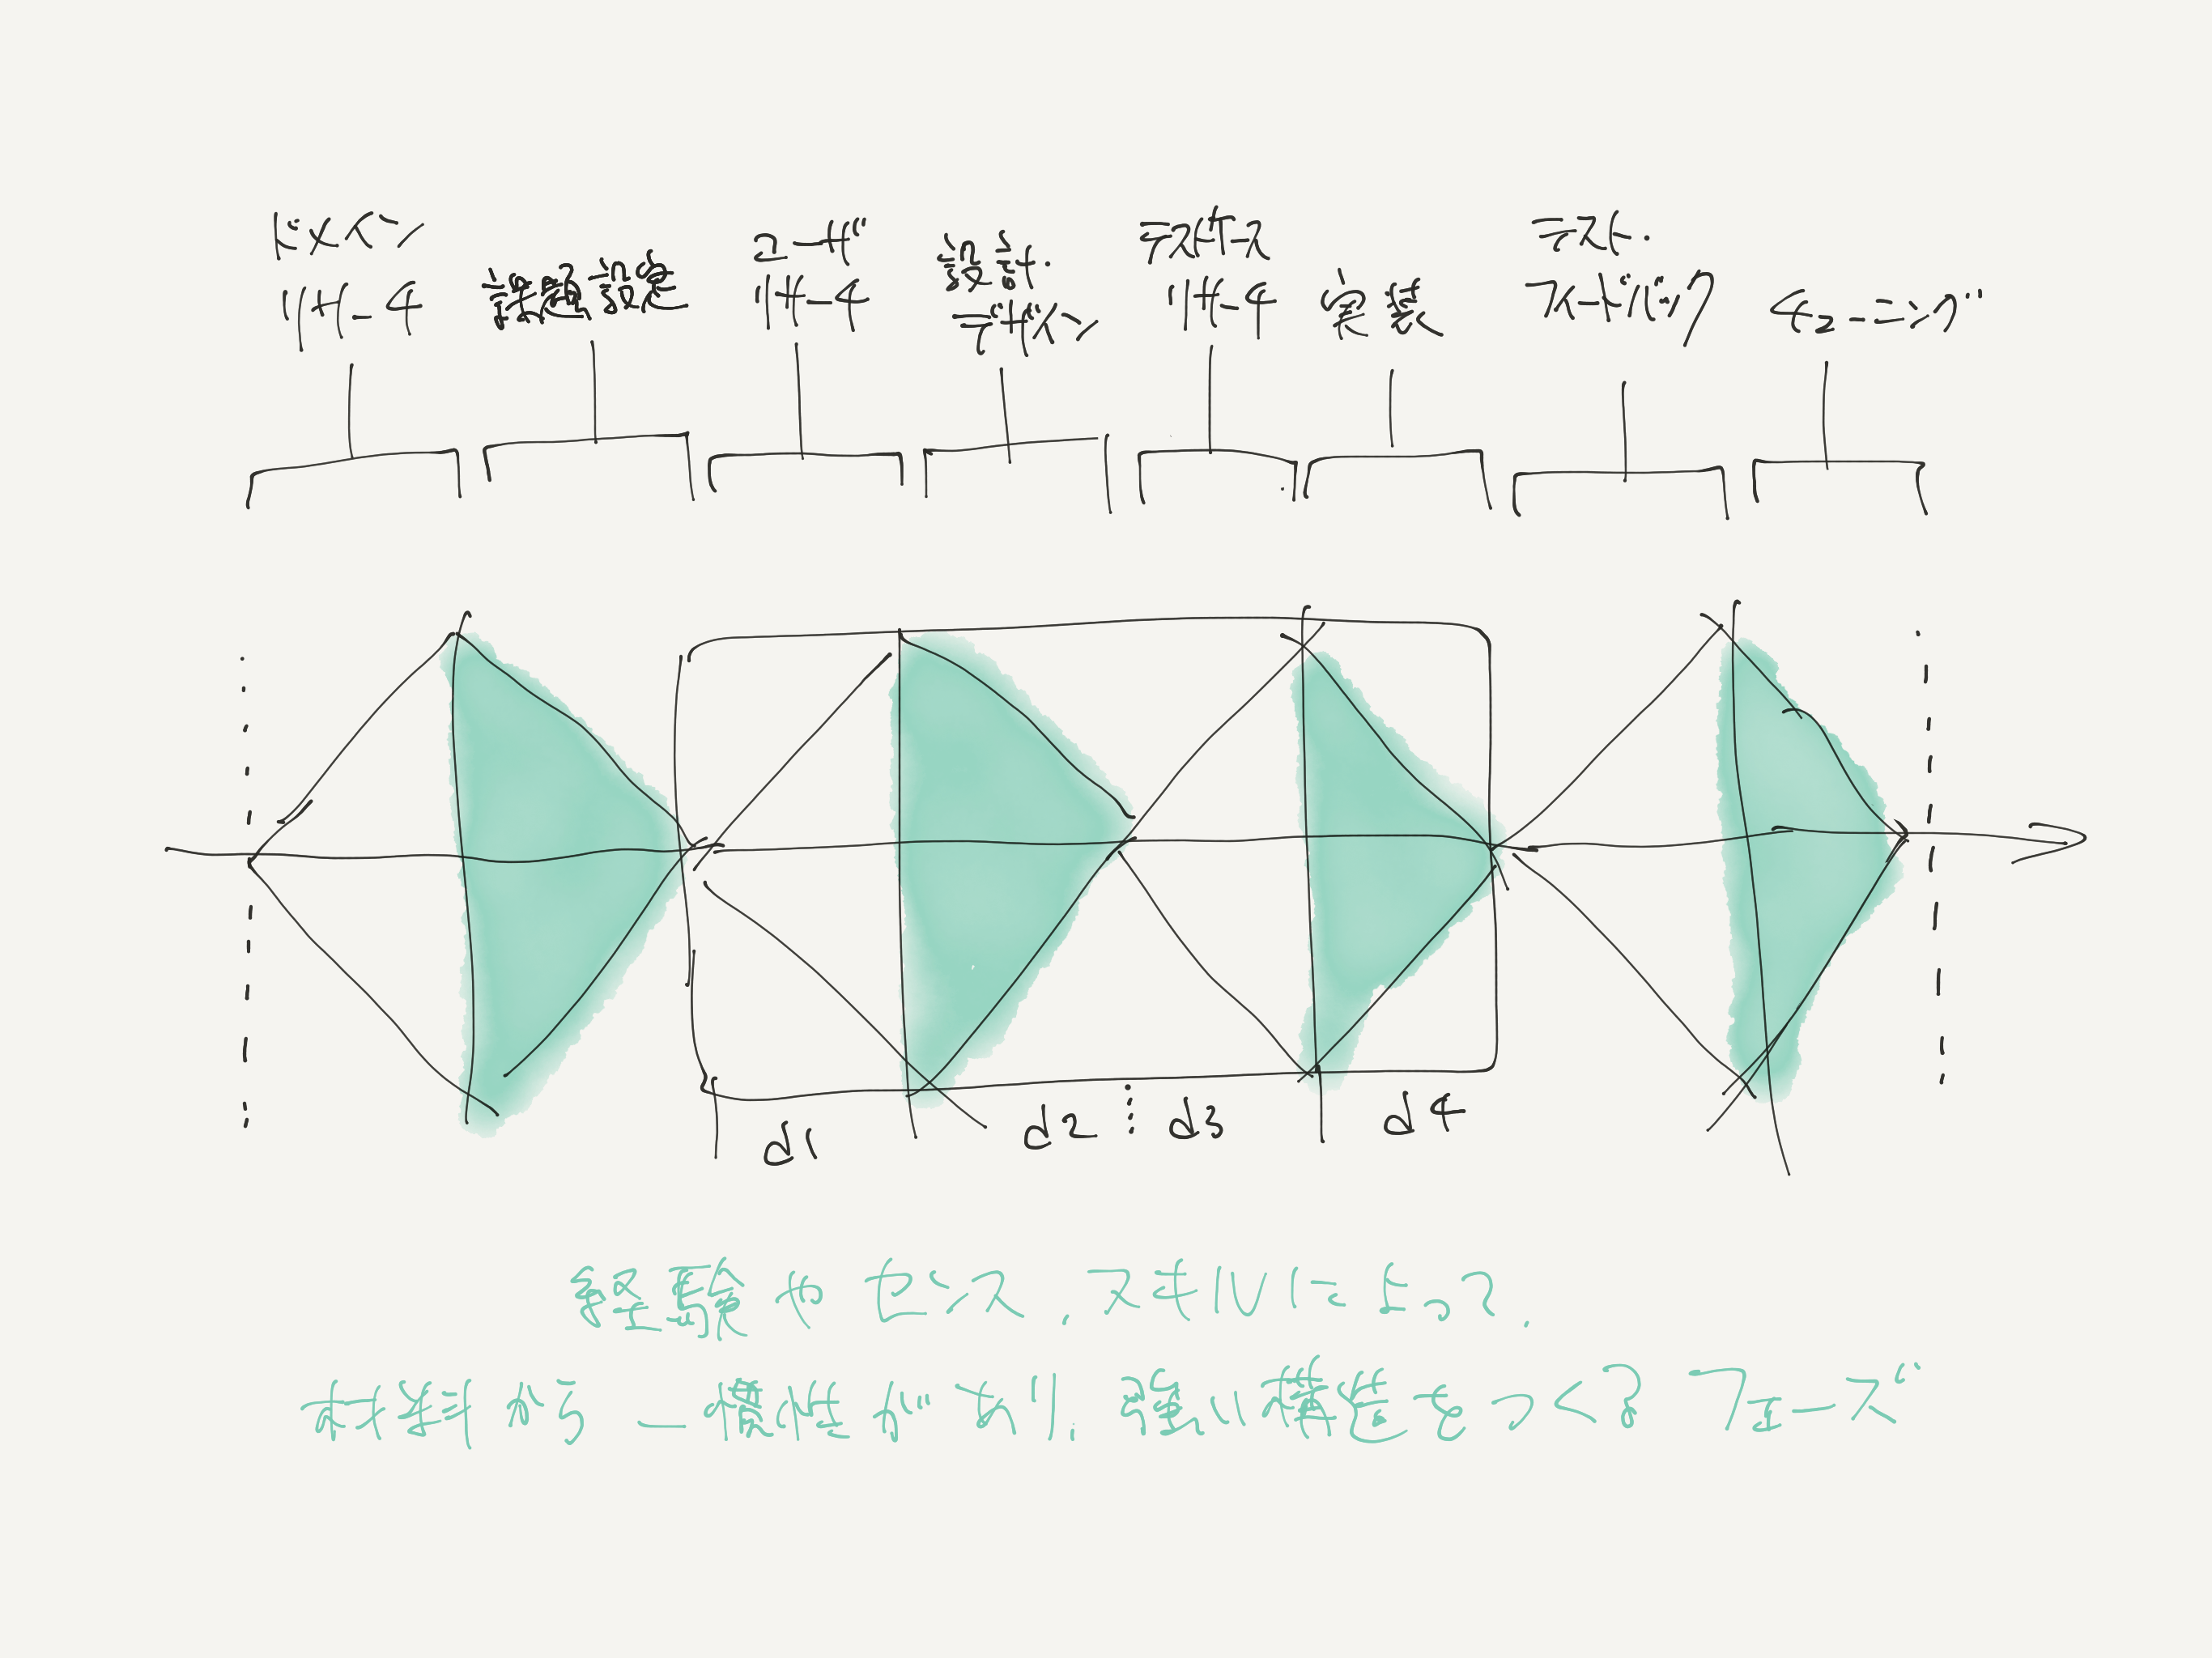 ドメイン
リサーチ
課題設定
ユーザ
リサーチ
設計・
デザイン
テストケース
リサーチ
実装
テスト・
フィードバック
チューニング
d1
d2
d3
d4
経験やセンス、スキルによって、
材料から一構性があり、強い構造をつくるフェーズ